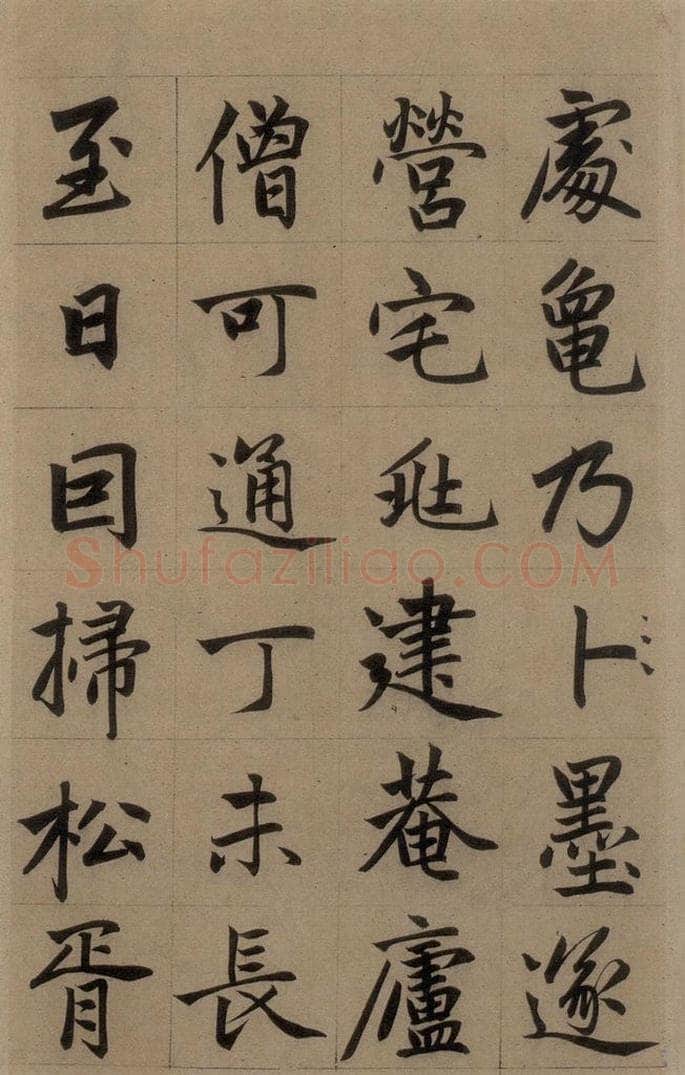 處龜乃卜墨遂
營宅兆建菴廬
僧可通丁未長
至日囙掃松胥
Shufaziliao.COM